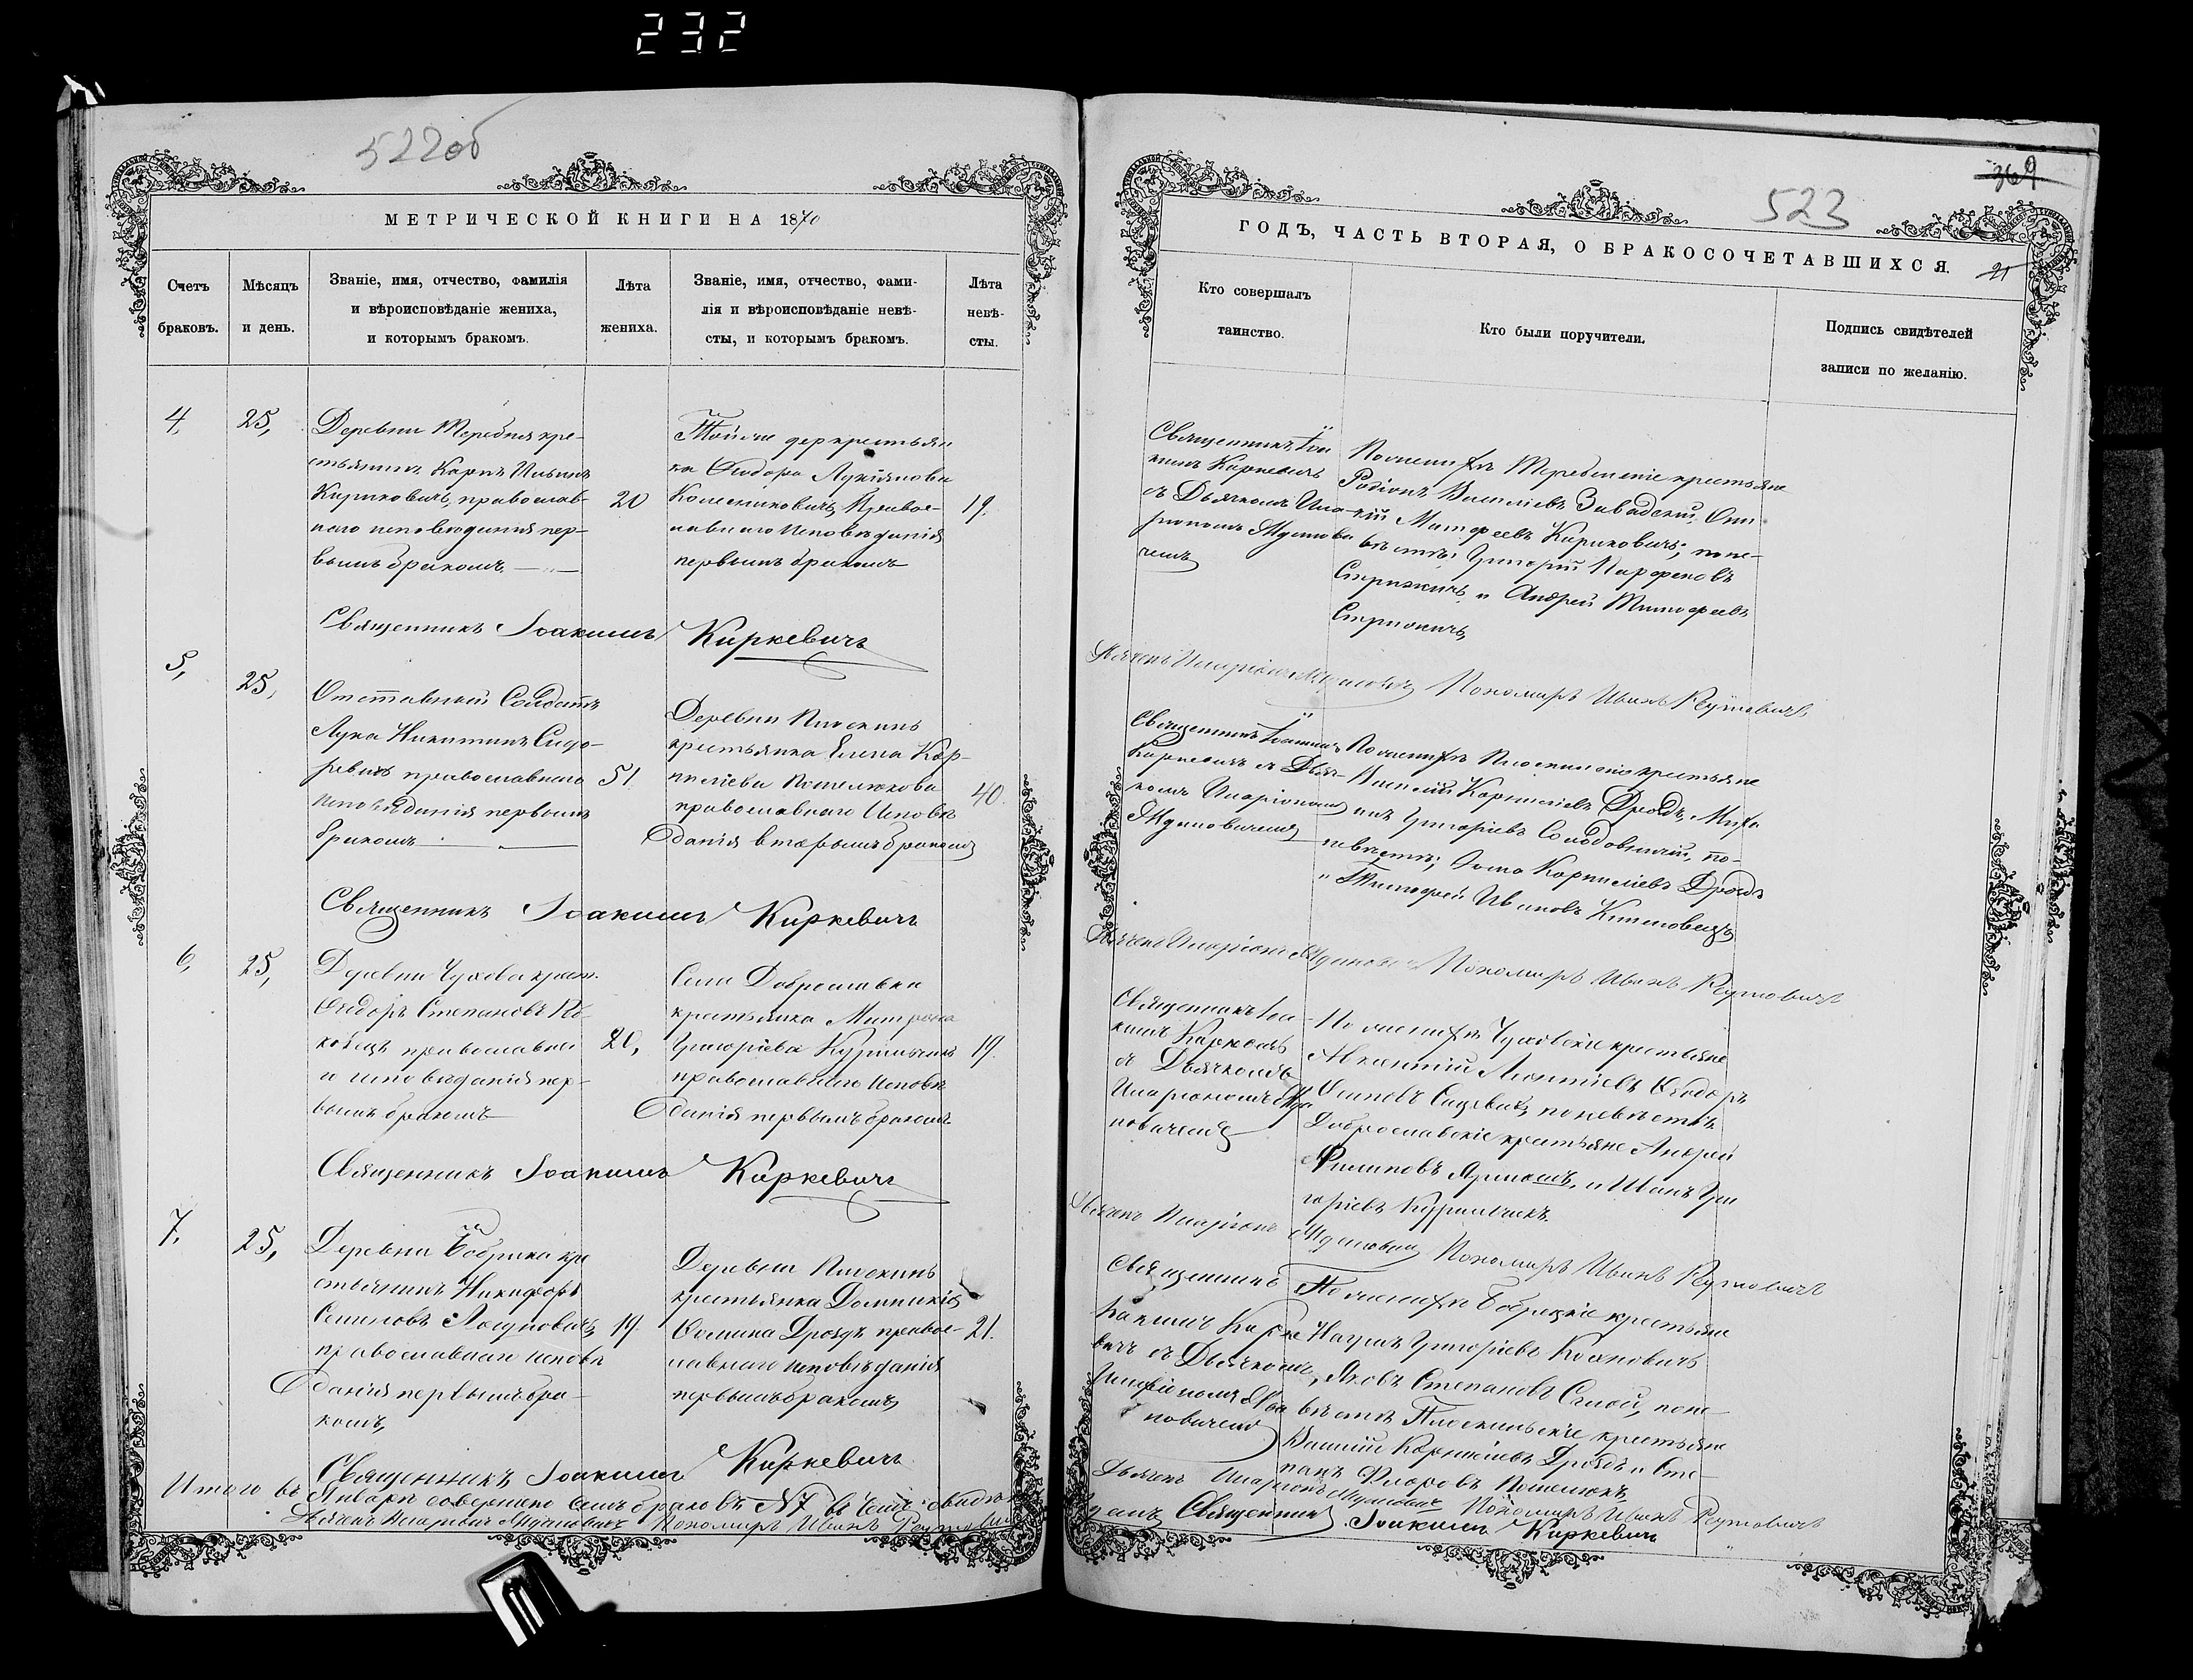 232
522об
МЕТРИЧЕСКОЙ КНИГИ НА 1870
Счетъ браковъ.
Мѣсяцъ и день.
Званіе, имя, отчество, фамилія
и вѣроисповѣданіе жениха,
и которымъ бракомъ.
Лѣта жениха.
Званіе, имя, отчество, фами-
лія и вѣроисповѣданіе невѣ-
сты, и которымъ бракомъ.
Лѣта невѣ-
сты.
4, 25,
Деревни Теребня кре-
стьянинъ Карпъ Ильинъ
Кириковичъ, православ-
наго исповѣданія пер-
вымъ бракомъ
20
Тойже дер крестьян
ка Ѳеодора Лукіянова
Колесниковичъ, Правос-
лавнаго Исповѣданія
первымъ бракомъ
19.
Священникъ Іоакимъ Киркевичъ
5, 25,
Отставный Солдатъ
Лука Никитинъ Сидо-
ревичъ православнаго
исповѣданія первымъ
бракомъ
51.
Деревни Плоскинь
крестьянка Елена Кор-
ниліева
православнаго Исповѣ
данія вторымъ бракомъ
40.
Священникъ Іоакимъ Киркевичъ
6, 25,
Деревни Чухова крест.
Ѳеодоръ Степановъ Ко-
православна
го исповѣданія пер-
вымъ бракомъ
20,
Села Доброславки
крестьянка
Григоріева Курильчикъ
православнаго Исповѣ
данія первымъ бракомъ
19.
Священникъ Іоакимъ Киркевичъ
7, 25,
Деревни Бобрика кре
стьянинъ Никифоръ
Семеновъ
православнаго исповѣ
данія первымъ бра-
комъ,
19.
Деревни Плоскинь
крестьянка Домникія
Ѳомина Дроздъ правос-
лавнаго исповѣданія
первымъ бракомъ,
21.
Священникъ Іоакимъ Киркевичъ
Итого въ Январѣ совершено семь браковъ №7 въ чемъ свидѣ
Дьячекъ Иларіонъ Ждановичъ Пономарь Иванъ Реутовичъ
369
523
ГОДЪ, ЧАСТЬ ВТОРАЯ, О БРАКОСОЧЕТАВШИХСЯ.
21
Кто совершалъ
таинство.
Кто были поручители.
Подпись свидѣтелей
записи по желанію.
Священникъ Іоа
кимъ Киркевичъ
съ Дьячкомъ Ила-
ріономъ Жданови
чемъ
По женихѣ Теребенскіе крестьяне
Родіонъ Василіевъ Завадскій,
Матфеевъ Кириковичъ; по не-
вѣстѣ: Григорій Парфеновъ
и Андрей Тимофеевъ
Дьячекъ Иларіонъ Ждановичъ Пономарь Иванъ Реутовичъ
Священникъ Іоакимъ
Киркевичъ съ Дьяч-
комъ Иларіономъ
Ждановичемъ
По женихѣ Плоскинскіе крестьяне
Василій Корниліевъ Дроздъ, Миха
илъ Григоріевъ Солодовницкій, по-
невѣстѣ; Ѳома Корниліевъ Дроздъ
и Тимофей Ивановъ
Дьячекъ Иларіонъ Ждановичъ Пономарь Иванъ Реутовичъ
Священникъ Іоа-
кимъ Киркевичъ
съ Дьячкомъ
Иларіономъ Жда
новичемъ
По женихѣ Чуховскіе крестьяне
Авксентій Леонтіевъ Ѳеодоръ
по невѣстѣ:
Доброславскіе крестьяне Андрей
Филиповъ и Иванъ Гри
горіевъ Курильчикъ.
Дьячекъ Иларіонъ Ждановичъ Пономарь Иванъ Реутовичъ
Священникъ
Іоакимъ Кирке
вичъ съ Дьячкомъ
Иларіономъ Жда
новичемъ
По женихѣ Бобрицкіе крестьяне
Наумъ Григоріевъ
Яковъ Степановъ по не-
вѣстѣ Плоскинскіе крестьяне
Василій Корниліевъ Дроздъ и Сте-
панъ Ѳлоровъ
Дьячекъ Иларіонъ Ждановичъ Пономарь Иванъ Реутовичъ
Священникъ Іоакимъ Киркевичъ